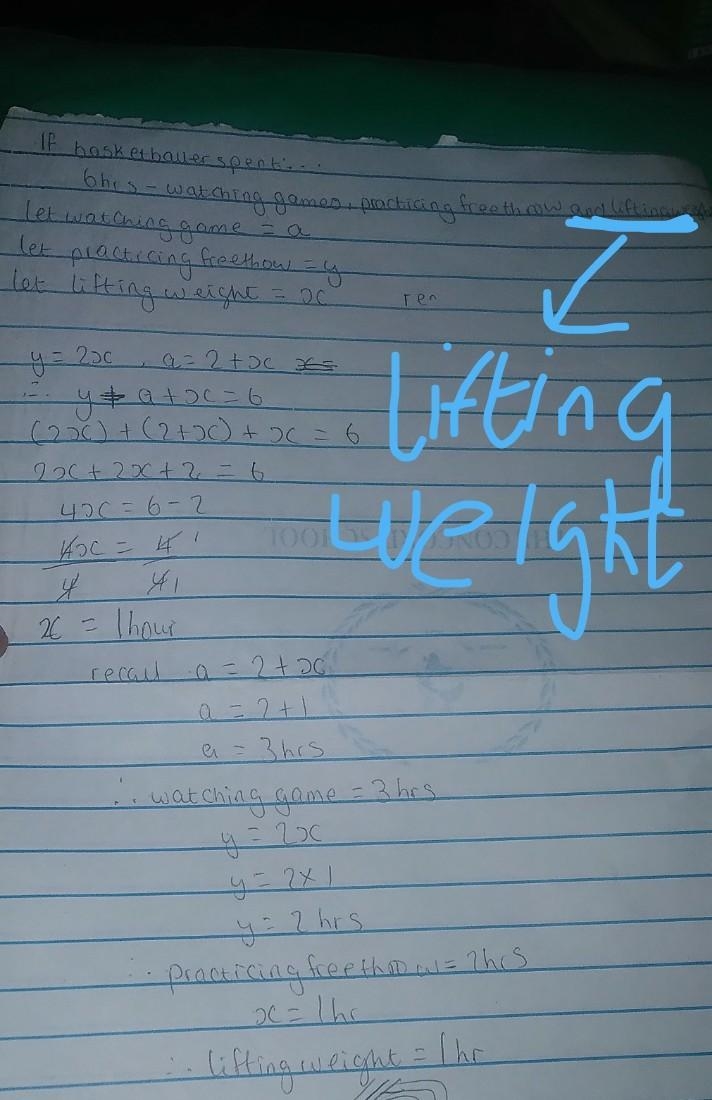 If basketballer spent....
6hrs - watching games, practicing freethrow and lifting
let watching game = a
let practicing freethow = y
let lifting weight = x ren
y = 2x, a = 2 + x x=
∴ y + a + x = 6
(2x) + (2+x) + x = 6
2x + 2x + 2 = 6
4x = 6 - 2
4x = 4 1
4 4 1
x = 1 hour
recall a = 2 + x
a = 2 + 1
a = 3 hrs
∴ watching game = 3 hrs
y = 2x
y = 2 x 1
y = 2 hrs
∴ practicing freethrow = 2hrs
x = 1 hr
∴ lifting weight = 1 hr
lifting
weight